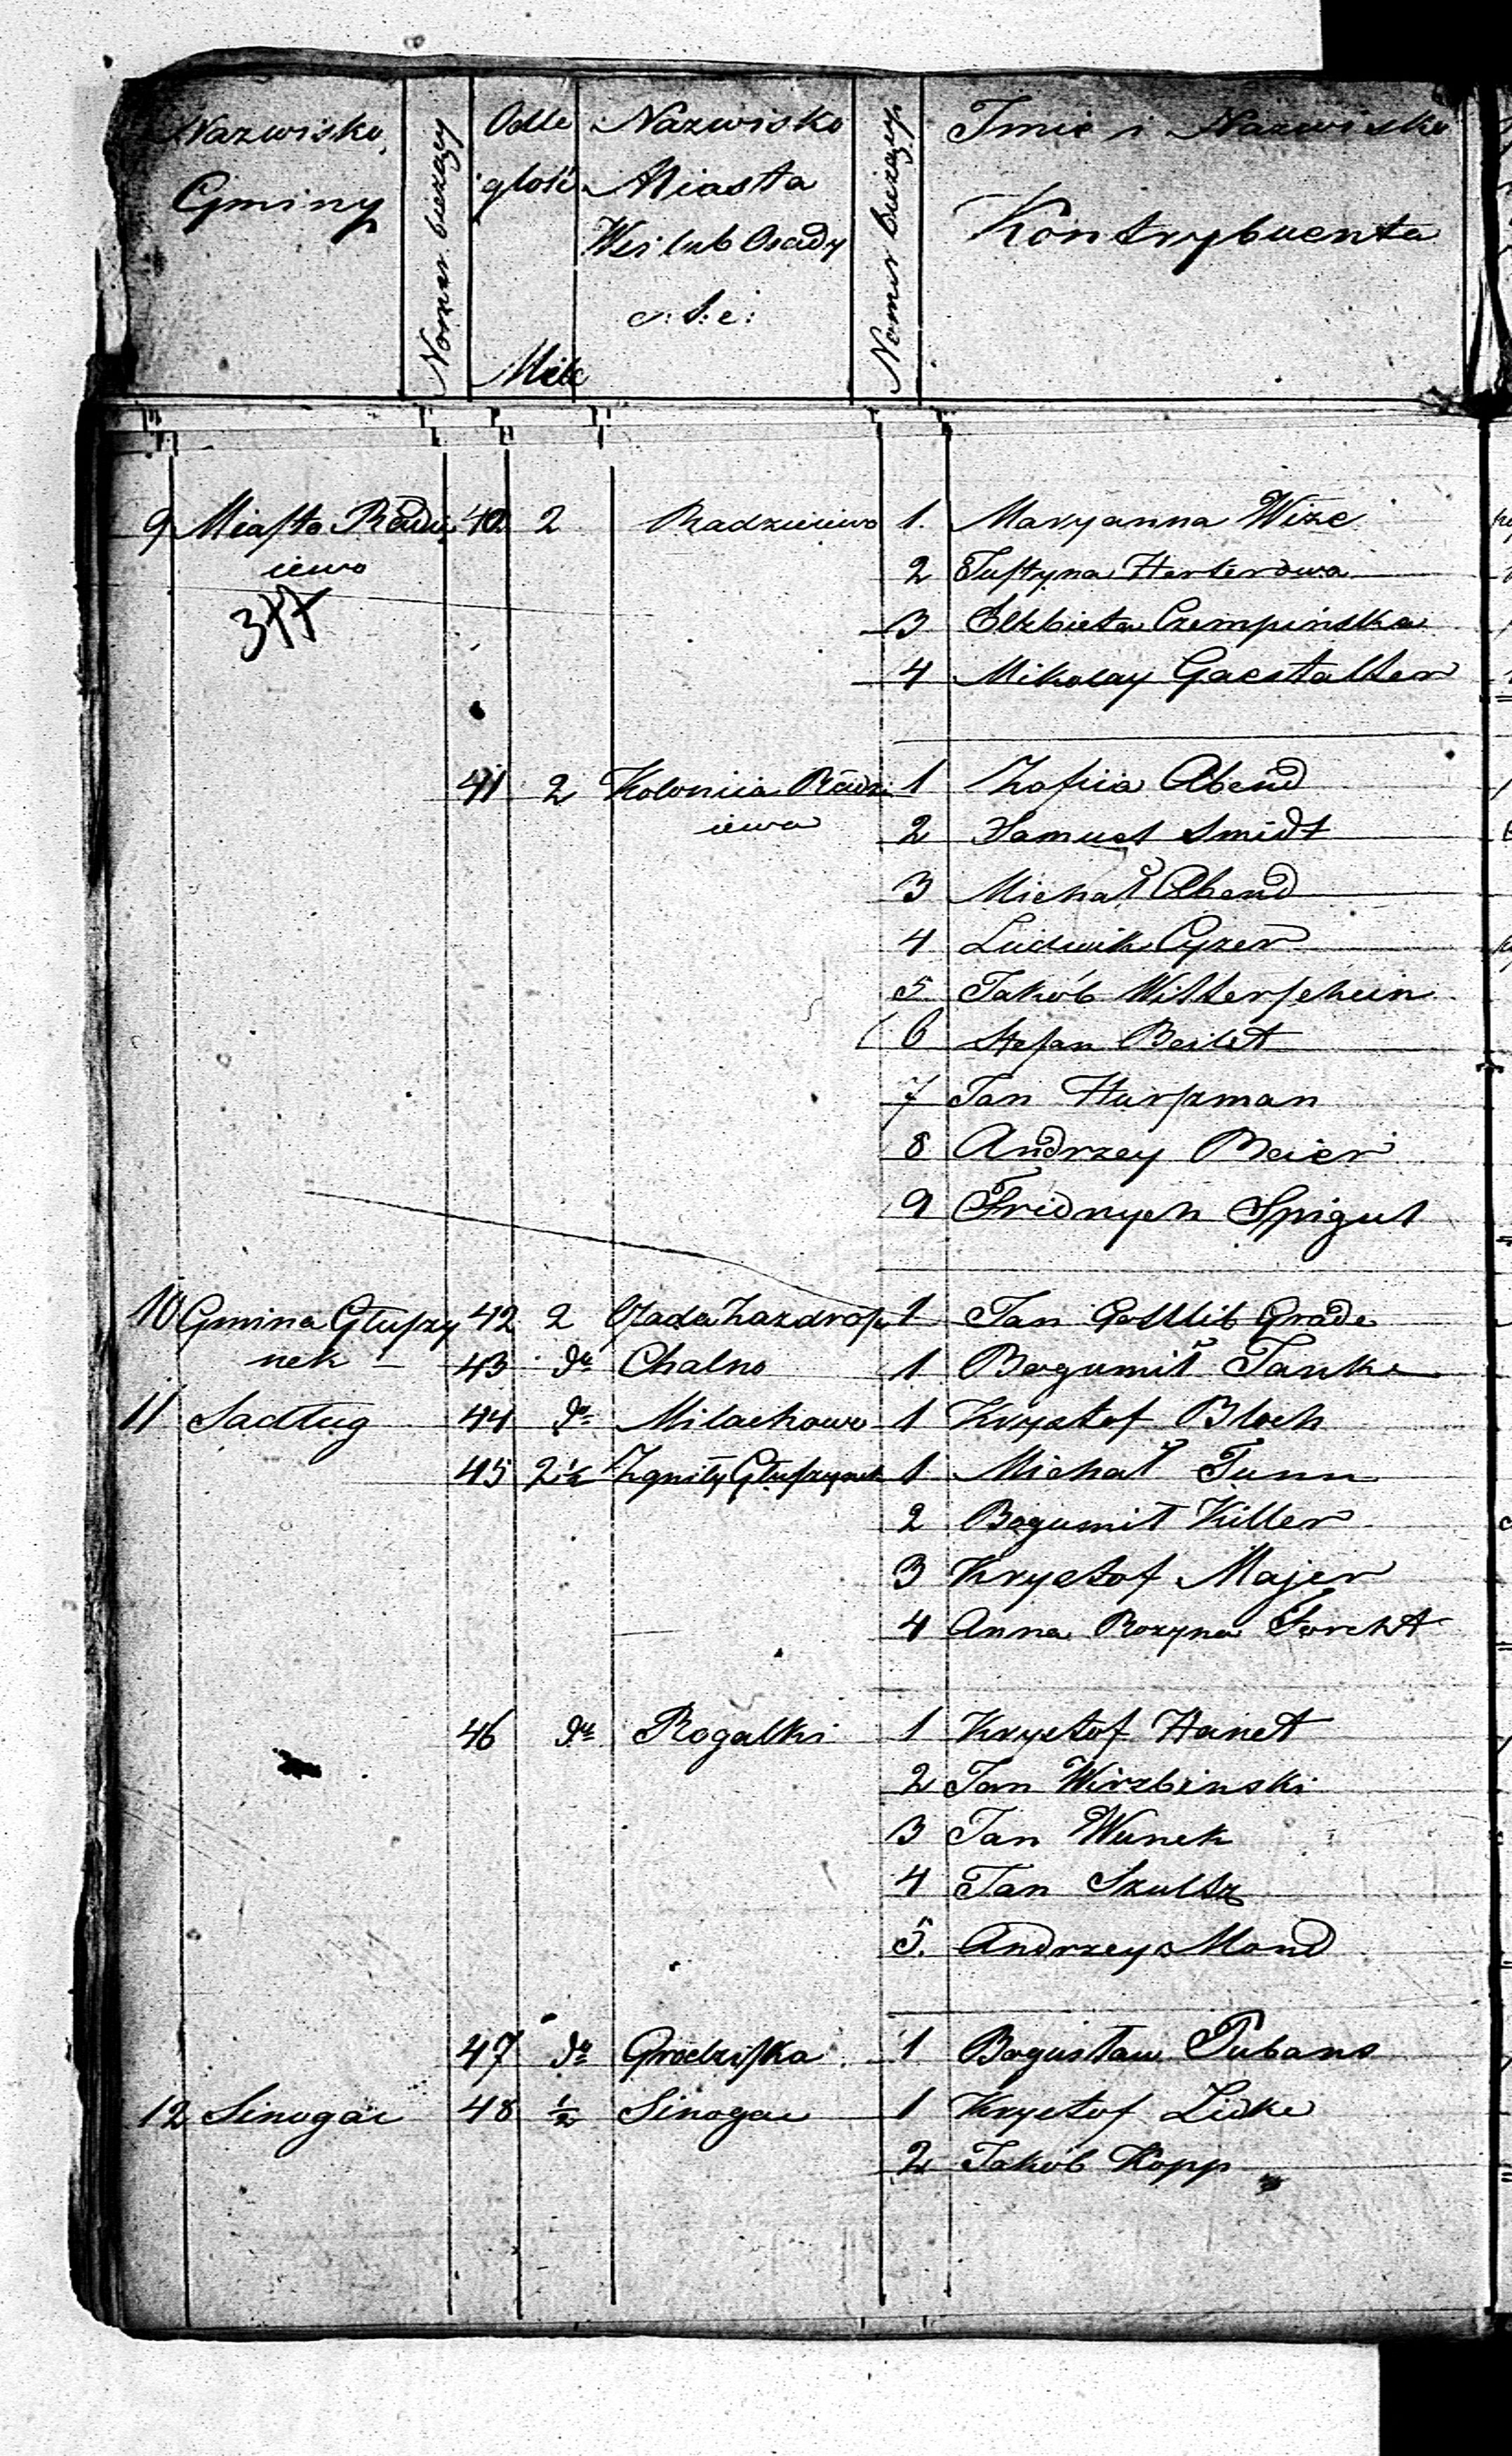 Nazwisko Gminy
Nomer bieżący
Odległość Mile
Nazwisko Miasta Wsi lub Osady
Nomer bieżący
Imie i Nazwisko Kontrybuenta
9 Miasto Radzi 40 2 Radzieiewo 1. Maryanna Wize
iewo 2 Justyna Herterowa
377 3 Elżbieta Czempińska
4 Mikolay Gaestalter
41 2 Koloniia Radzi 1 Zofiia Abend
iewa 2 Samuel Smidt
3 Michał Abend
4 Ludwik Cyzer
5 Jakób Witterschein
6 Stefan Beilet
7 Jan Harszman
8 Andrzey Beier
9 Fridrych Spigul
10 Gmina Głuszy 42 2 Osada 1 Jan Gottlib Grade
nek 43 do Chalno 1 Bogumił Janke
11 Sadług 44 do Milachowo 1 Krysztof Bloch
45 2½ Zgniły Głuszynek 1 Michał Tunn
2 Bogumił Killer
3 Krysztof Majer
4 Anna Rozyna Forcht
46 do Rogalki 1 Krysztof Hanet
2 Jan Wirzbinski
3 Jan Wunek
4 Jan Szultz
5. Andrzey Mond
47 do Grodziska 1 Bogusław Pubans
12 Sinogac 48 ½ Sinogac 1 Krysztof Lidke
2 Jakób Kopp